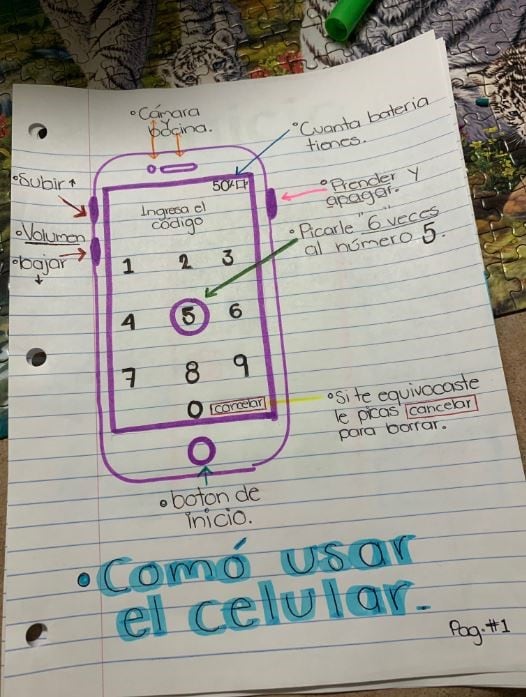 •Cámara
y
bocina.
•Cuanta bateria
tienes.
•Subir↑
50%
•Prender y
apagar.
Ingresa el
código
•Volumen
•bajar
↓
•Picarle "6 veces"
al número 5.
1 2 3
4 5 6
7 8 9
0 cancelar
•Si te equivocaste
le picas cancelar
para borrar.
•boton de
inicio.
•Comó usar
el celular.
Pag.#1